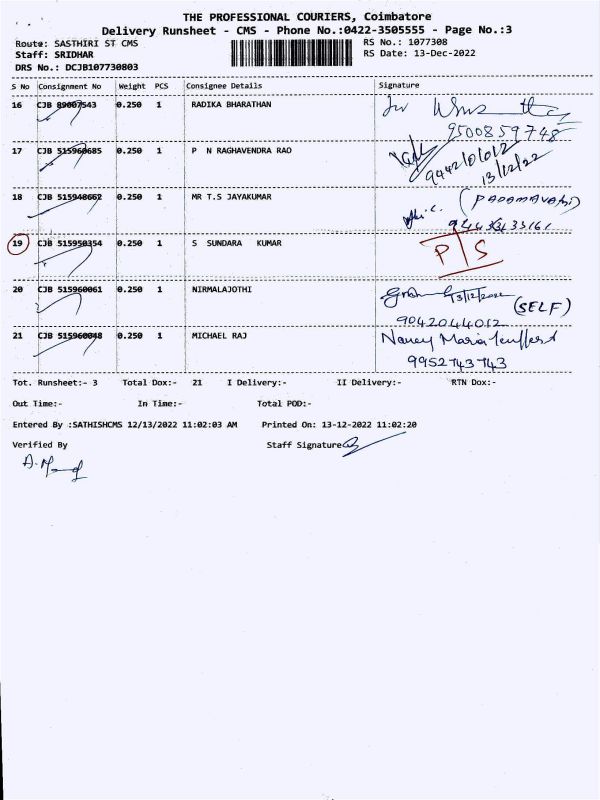 THE PROFESSIONAL COURIERS, Coimbatore
Delivery Runsheet - CMS - Phone No.:0422-3505555 - Page No.:3
Route: SASTHIRI ST CMS RS No.: 1077308
Staff: SRIDHAR RS Date: 13-Dec-2022
DRS No.: DCJB107730803
S No Consignment No Weight PCS Consignee Details Signature
16 CJB 89007543 0.250 1 RADIKA BHARATHAN
9500859748
17 CJB 515960685 0.250 1 P N RAGHAVENDRA RAO
13/12/22
18 CJB 515948662 0.250 1 MR T.S JAYAKUMAR (PADAMAVATHI)
19 CJB 515950354 0.250 1 S SUNDARA KUMAR P/S
20 CJB 515960061 0.250 1 NIRMALAJOTHI 13/12/2022
(SELF)
9042044012
21 CJB 515960048 0.250 1 MICHAEL RAJ Nancy Maria
9952743743
Tot. Runsheet:- 3 Total Dox:- 21 I Delivery:- II Delivery:- RTN Dox:-
Out Time:- In Time:- Total POD:-
Entered By :SATHISHCMS 12/13/2022 11:02:03 AM Printed On: 13-12-2022 11:02:20
Verified By Staff Signature